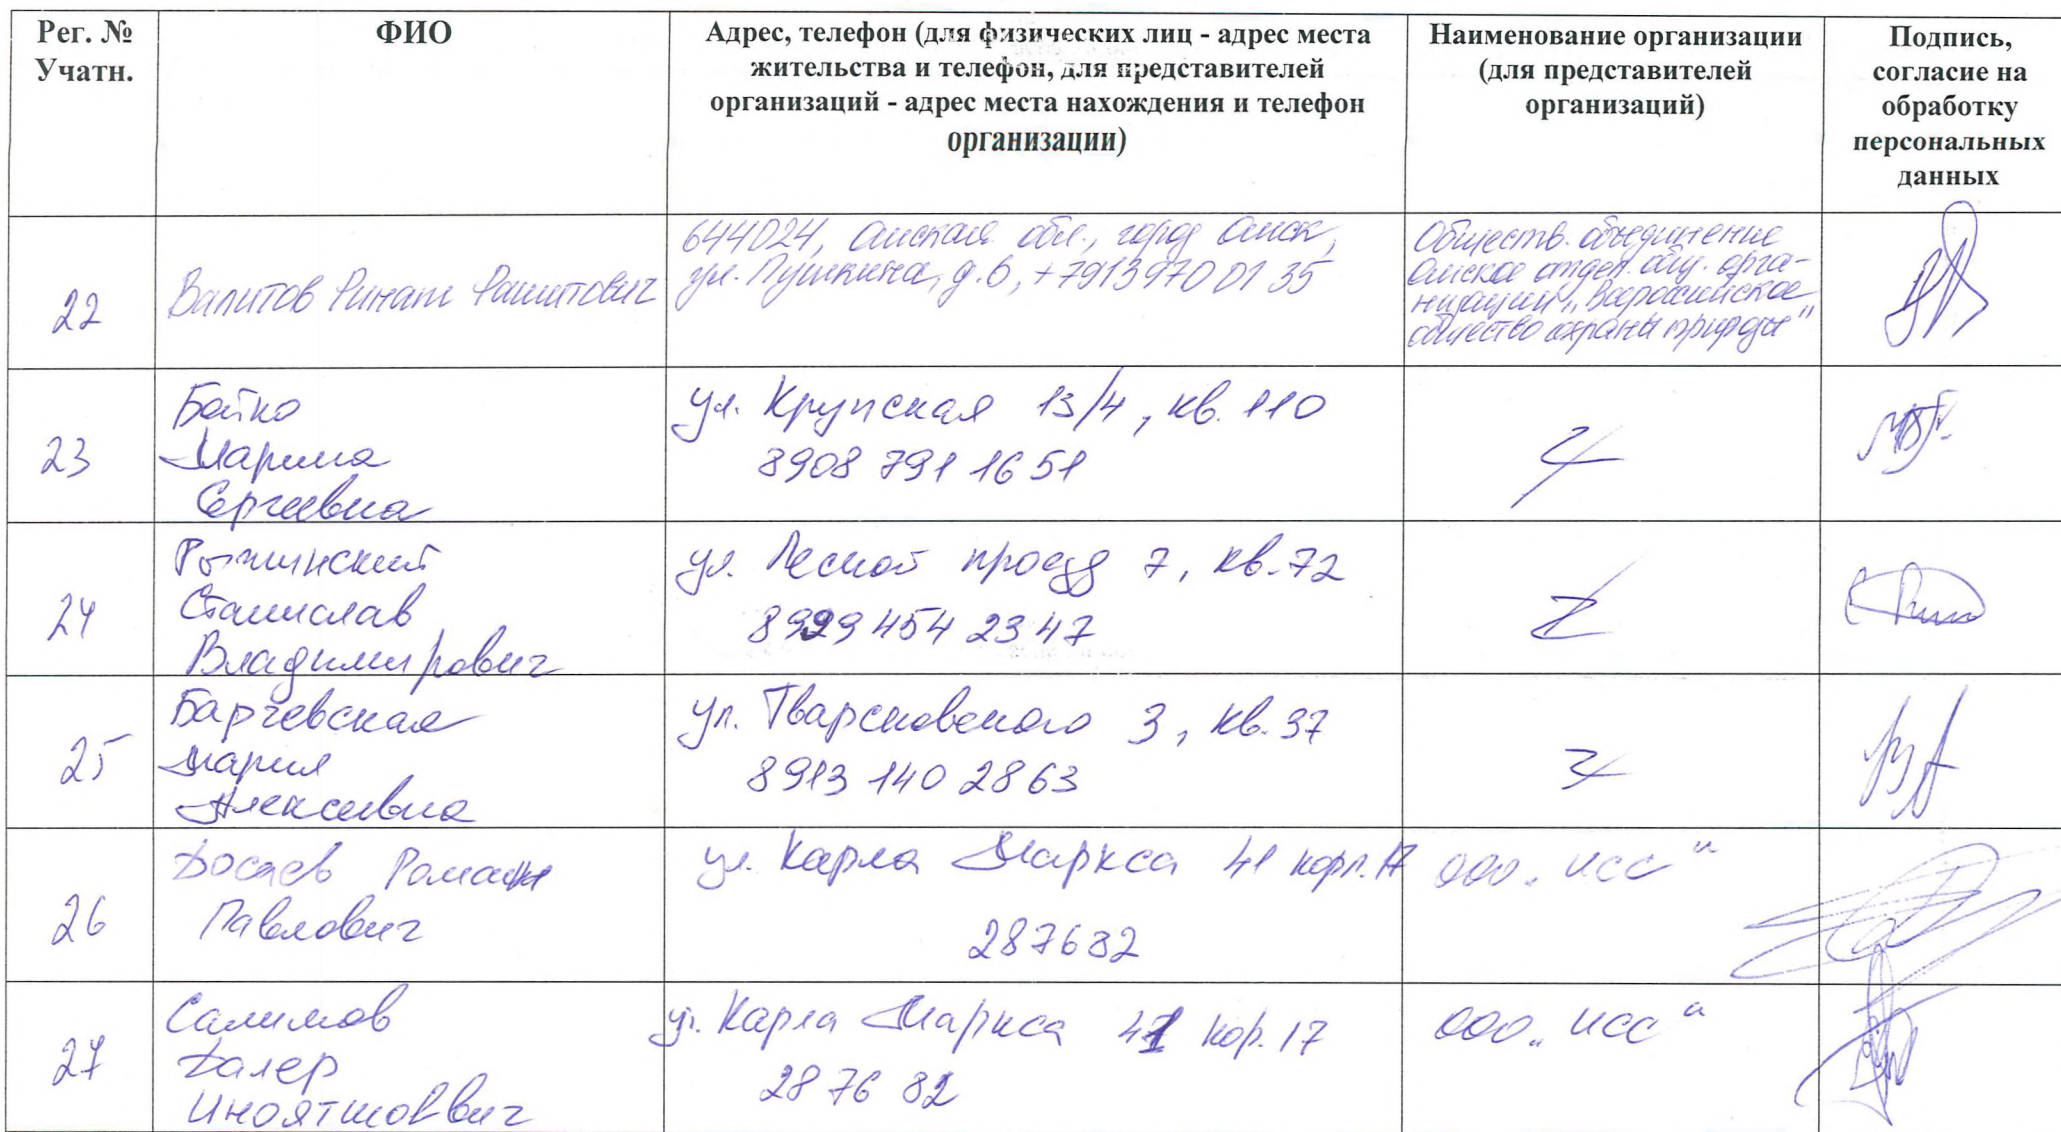 Рег. №
Учатн.
ФИО
Адрес, телефон (для физических лиц - адрес места
жительства и телефон, для представителей
организаций - адрес места нахождения и телефон
организации)
Наименование организации
(для представителей
организаций)
Подпись,
согласие на
обработку
персональных
данных
22
Валитов Ринат Рашитович
644024, Омская обл., город Омск,
ул. Пушкина, д. 6, +7913 970 01 35
Обществ. объединение
Омское отдел. общ. орга-
низации „Всероссийское
общество охраны природы"
23
Бойко
Марина
Сергеевна
ул. Крупская 13/4, кв. 110
8908 791 16 51
24
Станислав
Владимирович
ул. Лесной проезд 7, кв. 72
8929 454 23 47
25
Барчевская
Мария
Алексеевна
ул. 3, кв. 37
8913 140 28 63
26
Роман
Павлович
ул. Карла Маркса 41 корп.
287682
ООО „ИСС"
27
Салимов
Далер
ул. Карла Маркса 41 кор. 17
28 76 82
ООО „ИСС"